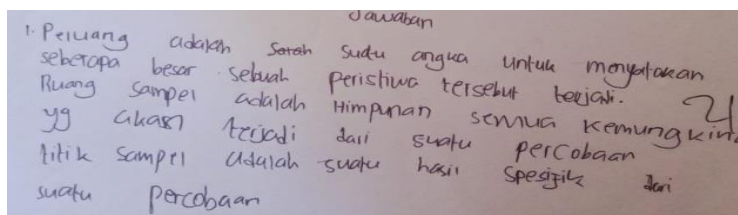 Jawaban
1. Peluang adalah Satah suatu angka untuk menyatakan
seberapa besar sebuah peristiwa tersebut terjadi.
Ruang sampel adalah Himpunan semua kemungkin
yg akan terjadi dari suatu percobaan
titik sampel adalah suatu hasil spesifik dari
suatu percobaan